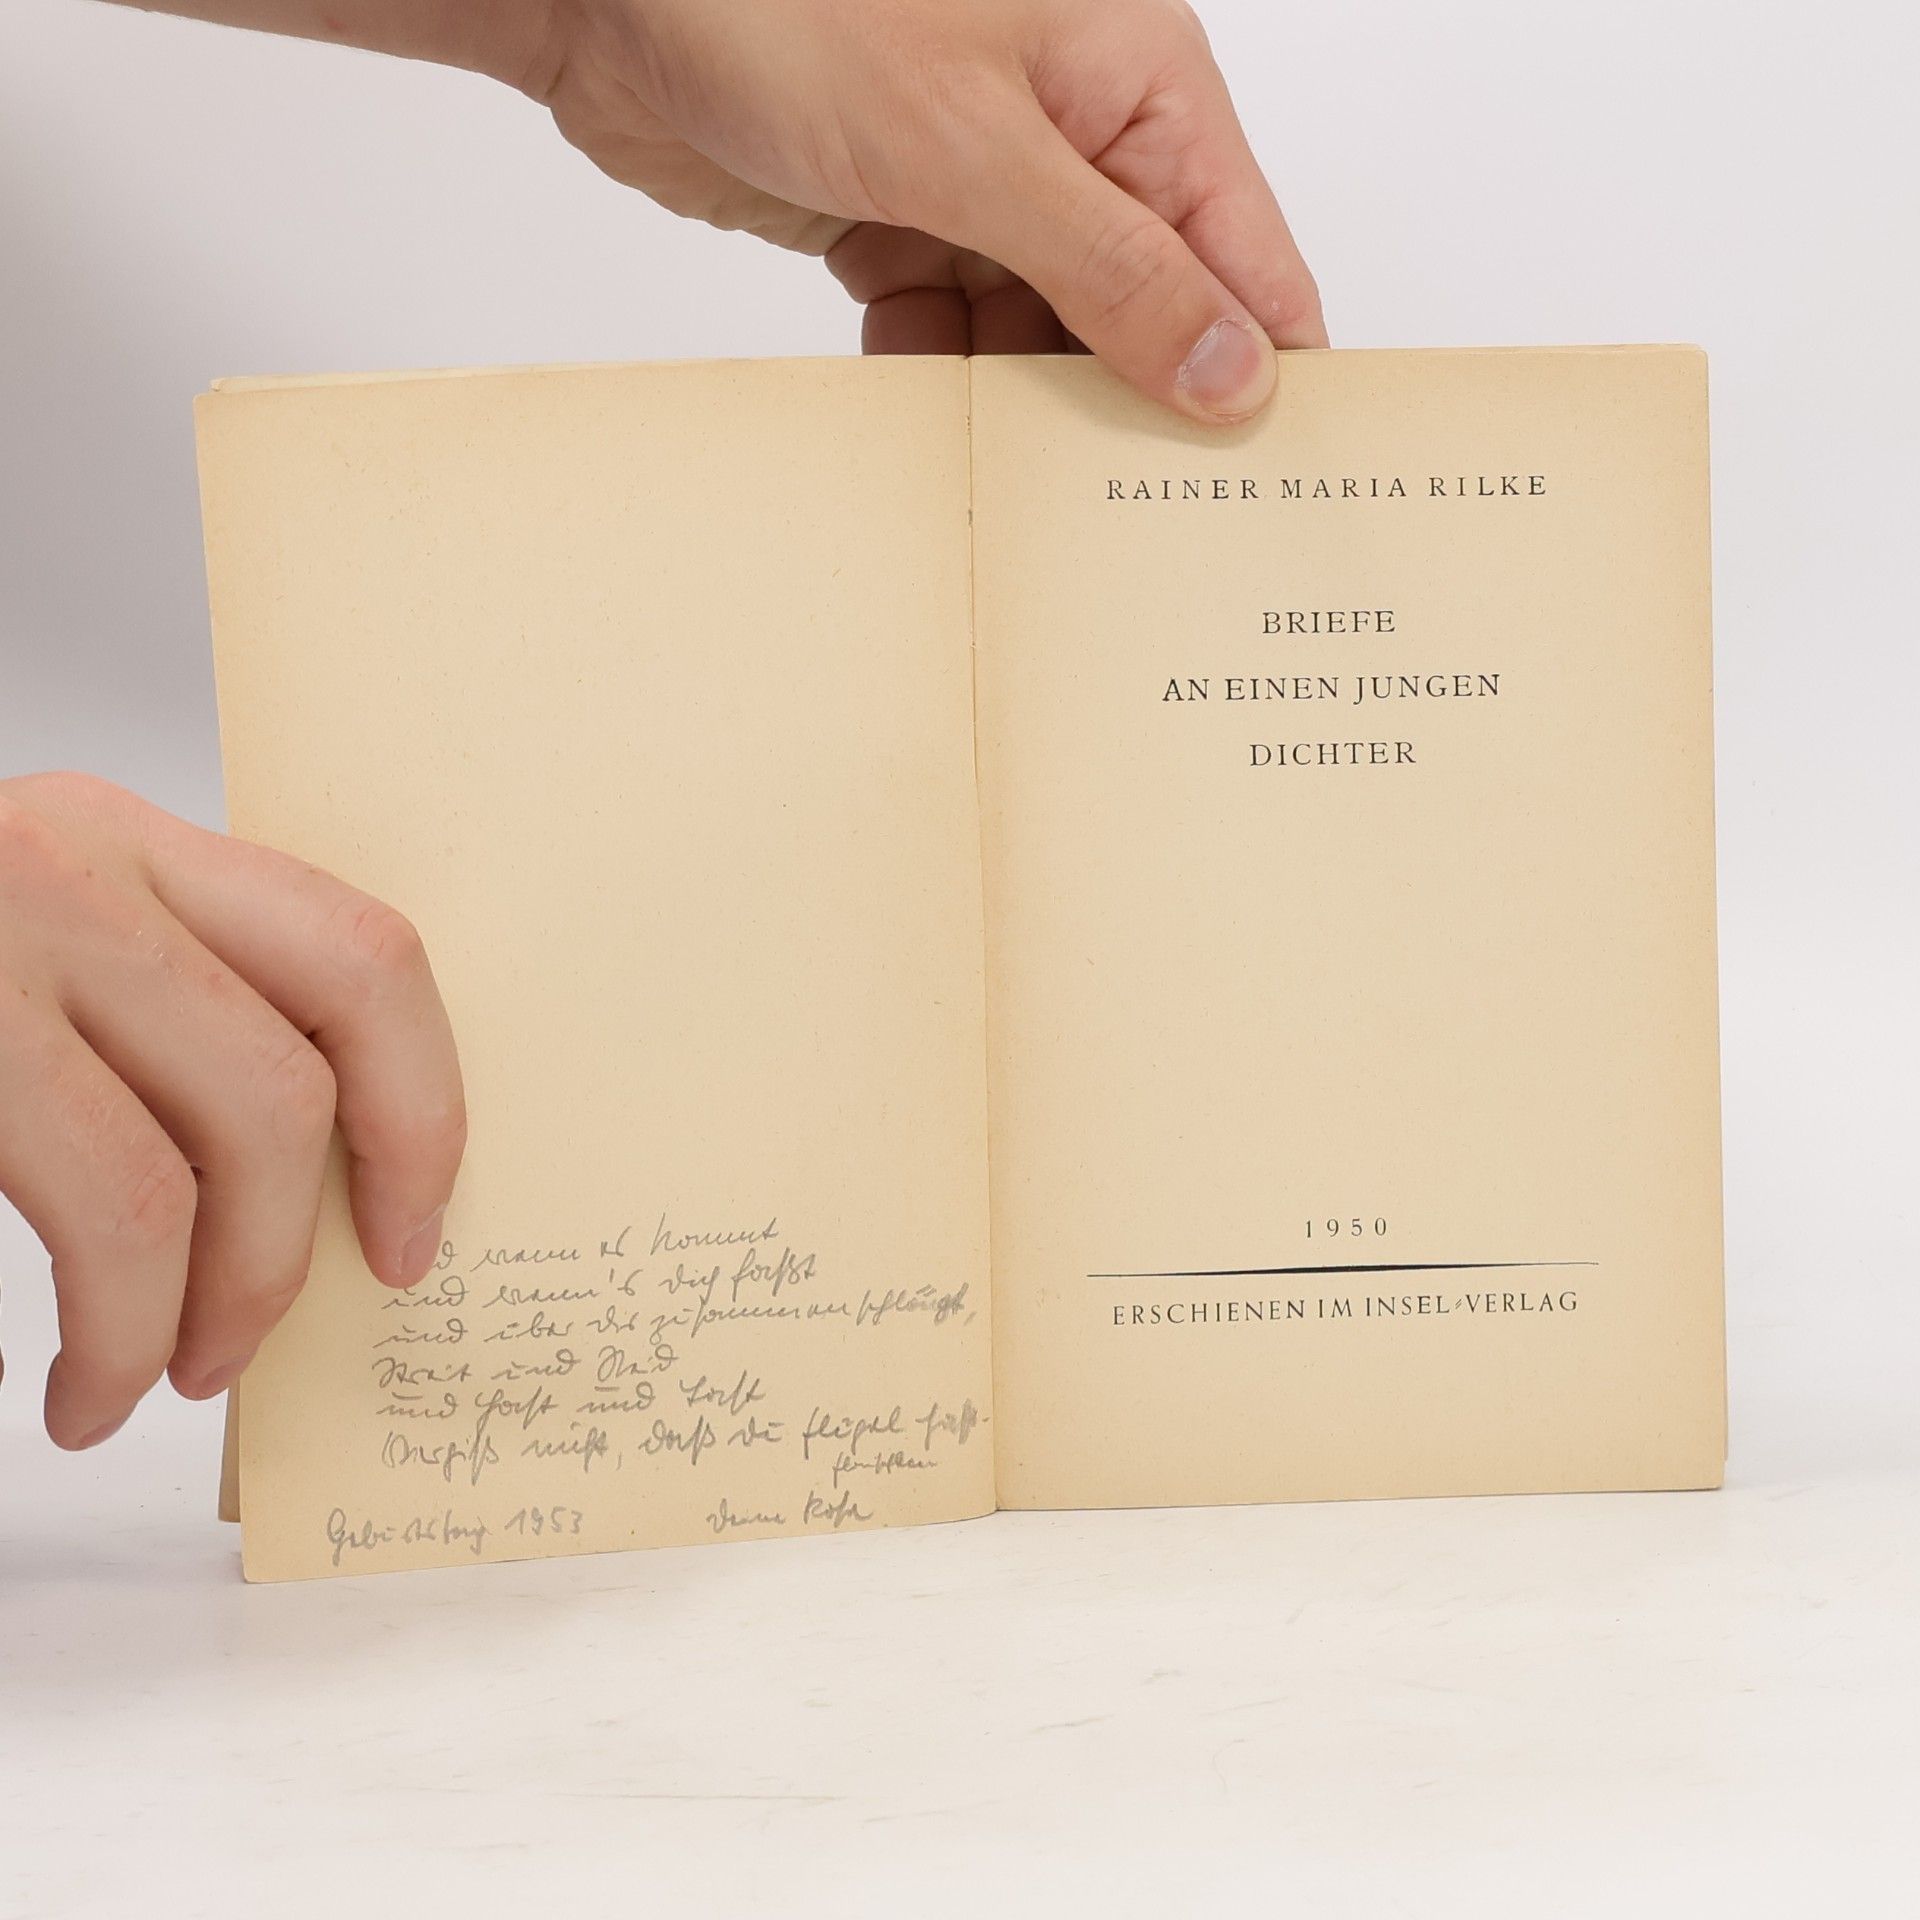 d wenn es kommt
und wenn's dich faßt
und über dir zusammenschlägt,
Streit und Neid
und Hast und Last
Vergiß nicht, daß du Flügel hast.
Flaischlen
Geburtstag 1953 deine
RAINER MARIA RILKE
BRIEFE
AN EINEN JUNGEN
DICHTER
1950
ERSCHIENEN IM INSEL-VERLAG